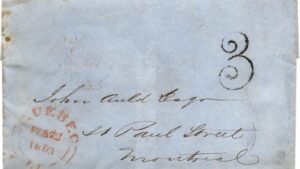 3
John Auld Esqr
St Paul Street
Montreal
QUEBEC
FEB 22